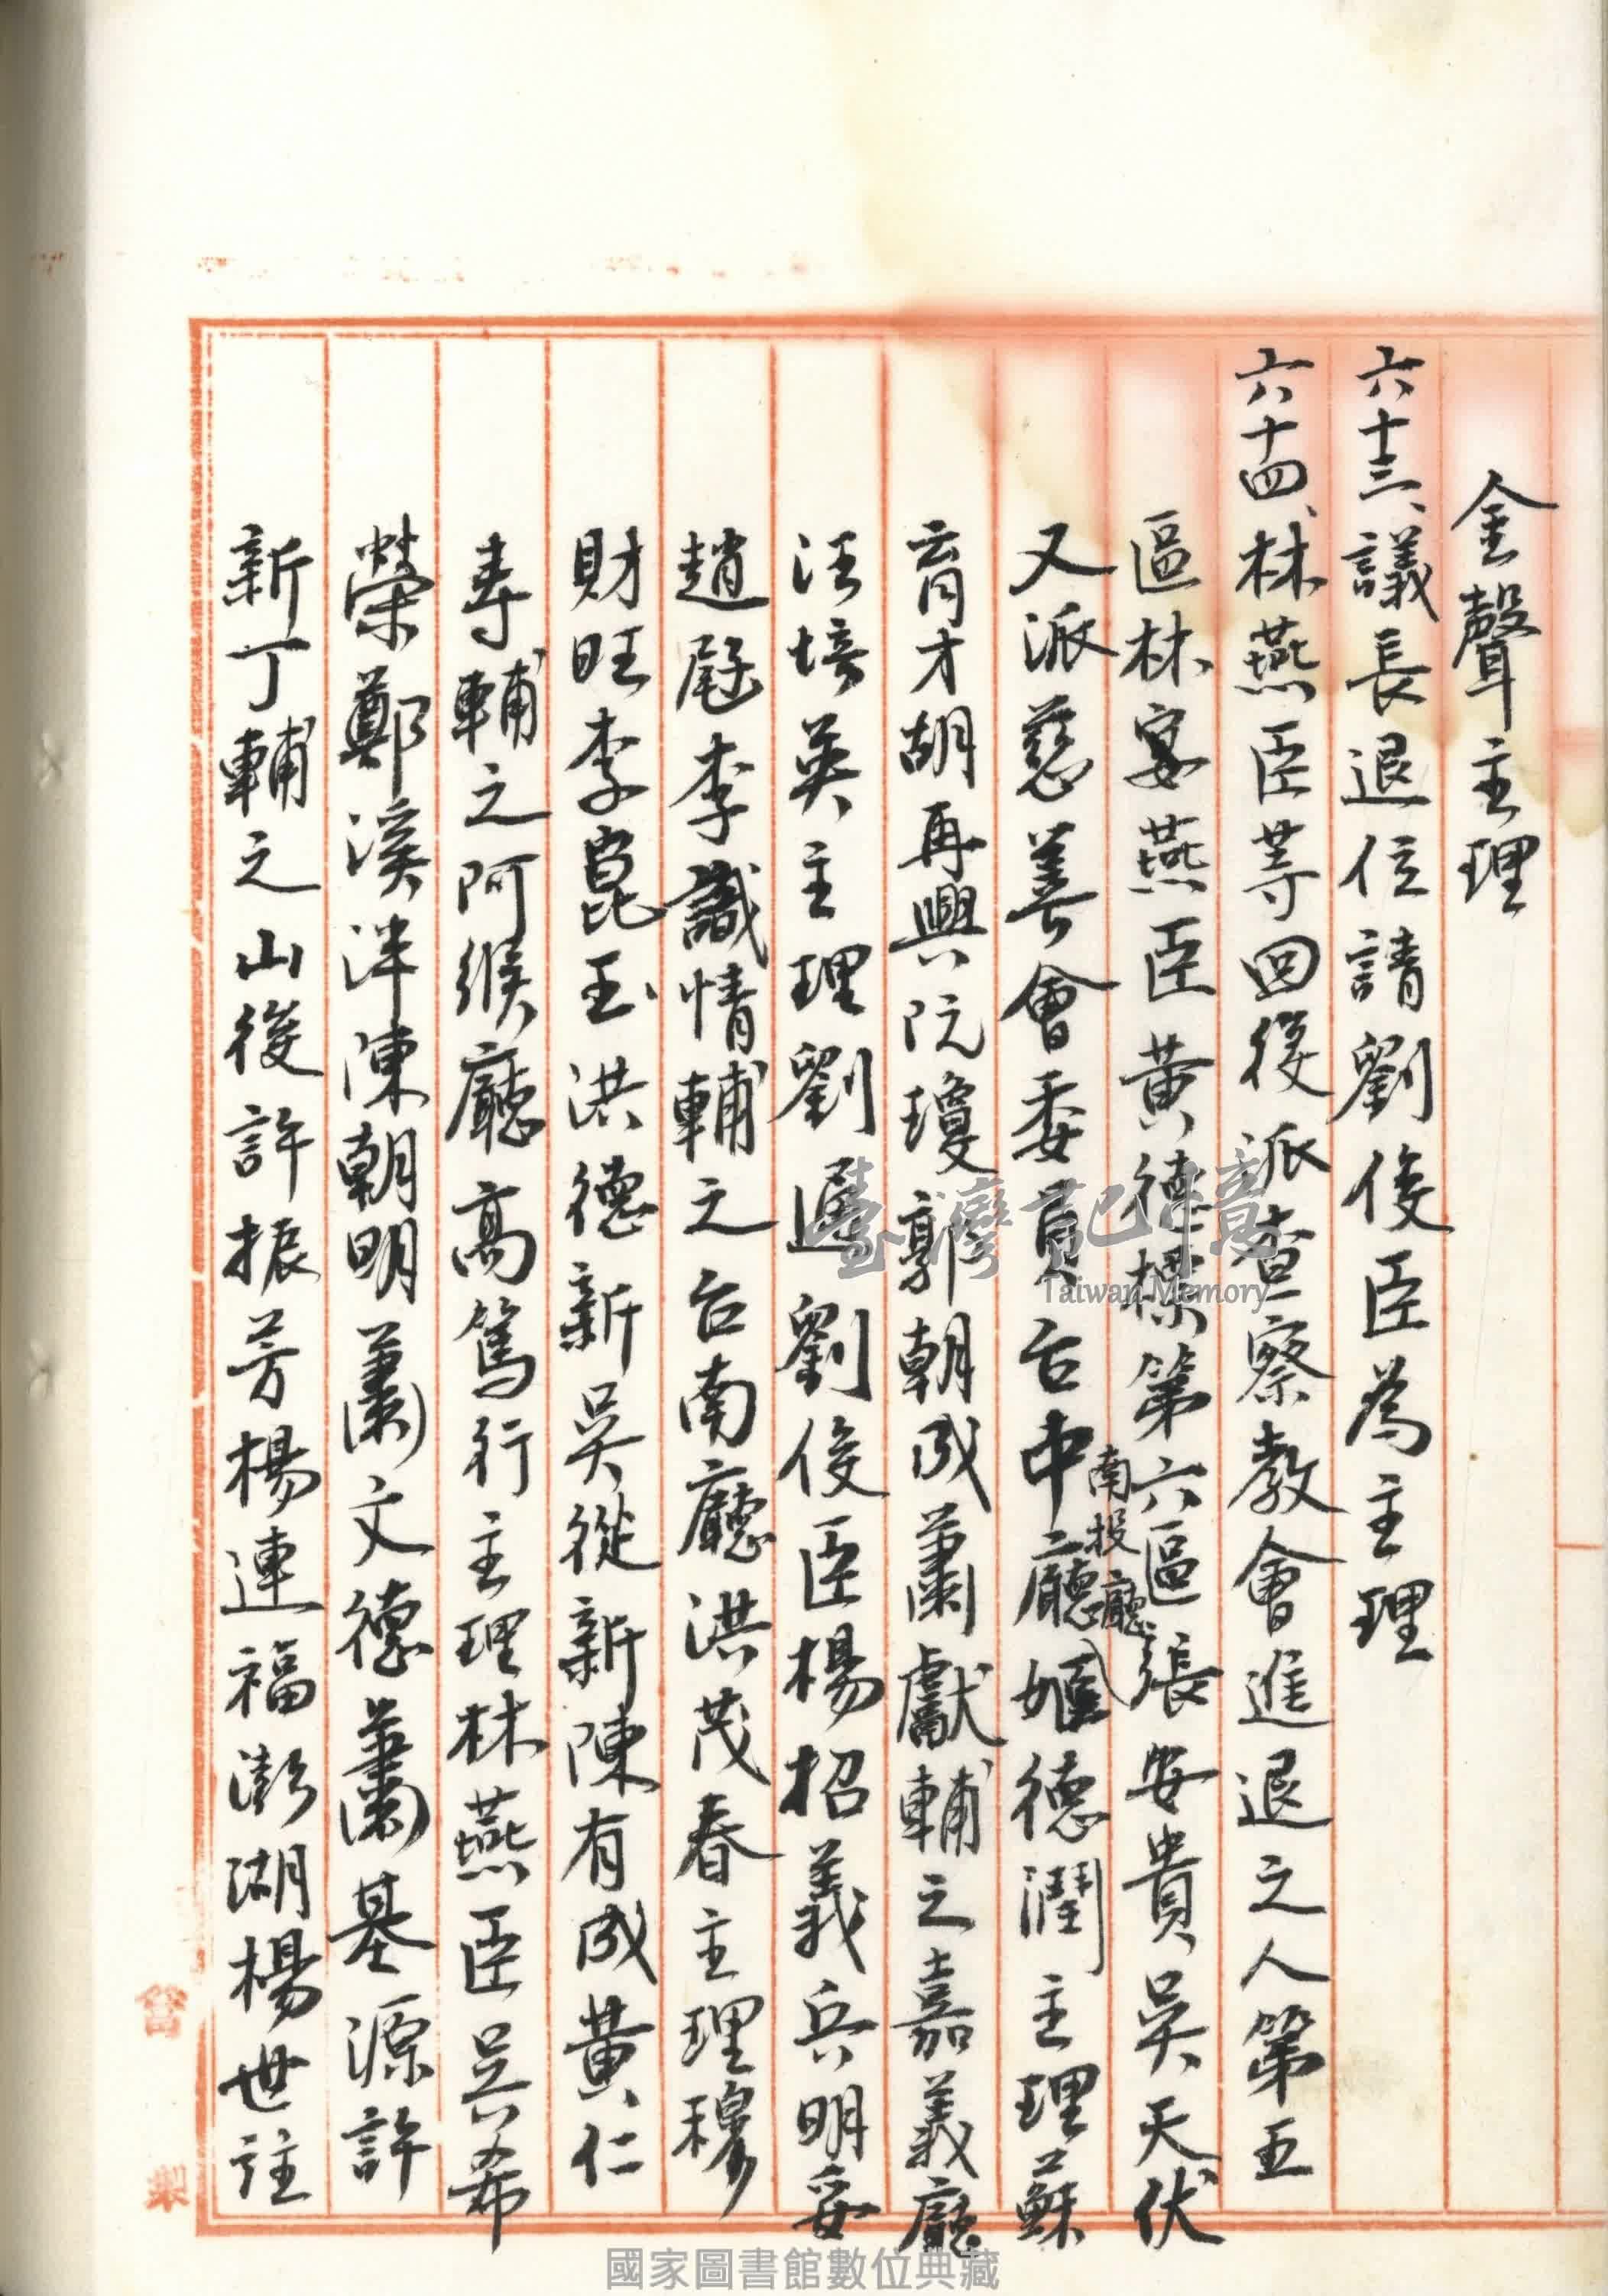 金聲主理
六十三、議長退位請劉俊臣為主理
六十四、林燕臣等回後派查察教會進退之人第五
區林宴燕臣黃德樑第六區張安貴吳天伏
又派慈善會委員台中南投廳廳姬德潤主理蘇
育才胡再興阮瓊郭朝成蕭獻輔之嘉義廳
汪培英主理劉暹劉俊臣楊招義兵明妥
趙爬李識情輔之台南廳洪茂春主理穆
財旺李崑玉洪德新吳從新陳有成黃仁
壽輔之阿緱廳高篤行主理林燕臣吳希
榮鄭溪泮陳朝明蕭文德蕭基源許
新丁輔之山後許振芳楊連福澎湖楊世註
會
製
臺灣記憶
Taiwan Memory
國家圖書館數位典藏